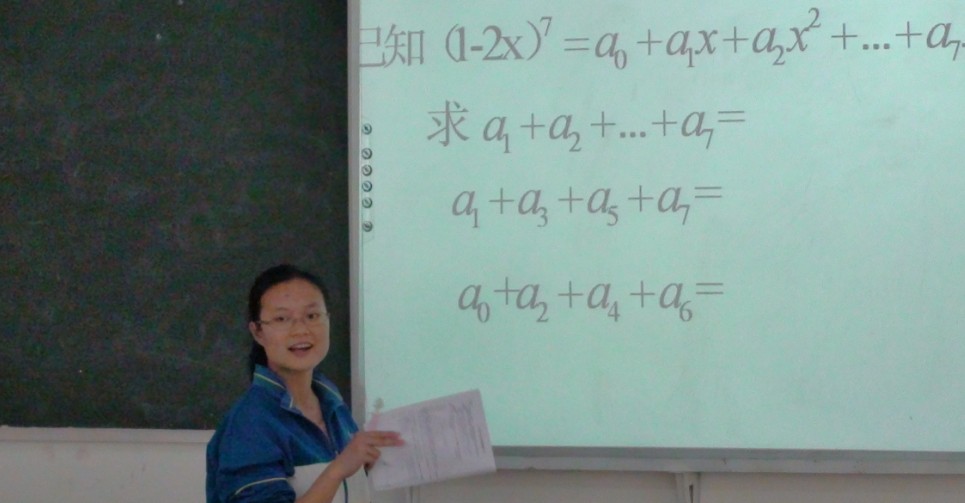 已知 (1-2x)⁷ =a₀ +a₁x+a₂x² +...+a₇
求 a₁ +a₂ +...+a₇=
a₁ +a₃ +a₅ +a₇=
a₀+a₂ +a₄ +a₆=